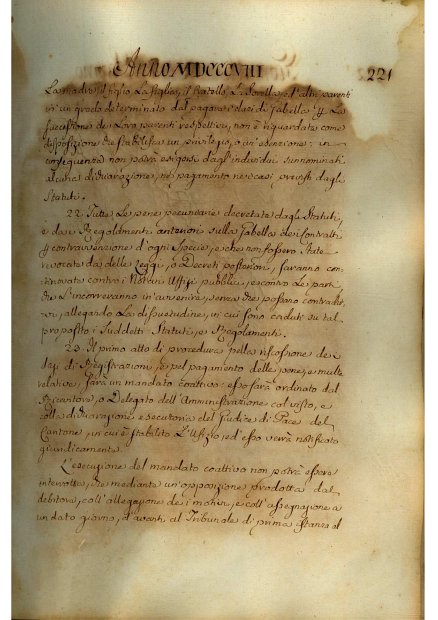 Anno MDCCCVIII 221
La madre, il figlio, la figlia, il fratello, la sorella, e l'altri parenti
in un grado determinato dal pagare i dazi di Gabella p la
successione de loro parenti rispettivi, non è riguardata come
disposizione che stabilisca un privilegio, o un'esenzione; in
conseguenza non potrà esigersi dagl'individui sunnominati
alcuna dichiarazione, nè pagamento ne' casi previsti dagli
Statuti.
22. Tutte le pene pecuniarie decretate dagli Statuti,
e da Regolamenti anteriori sulla Gabella dei Contratti
p contravvenzione d'ogni specie, e che non fossero state
revocate da delle Leggi, o Decreti posteriori, saranno con
tinovate contro i Notari Uffizi pubblici, e contro le parti
che l'incorreranno in avvenire, senza che possano contradit
tori, allegando la dissuetudine, in cui sono caduti su tal
proposito i suddetti Statuti, e Regolamenti.
23. Il primo atto di procedura pella riscossione de
dazi di Registrazioni, e pel pagamento delle pene, e multe
relative, sarà un mandato coattivo: esso sarà ordinato dal
Ricevitore, o Delegato dell'Amministrazione col visto, e
colla dichiarazione esecutoria del Giudice di Pace del
Cantone, in cui è stabilito l'Ufizio, ed esso verrà notificato
giuridicamente.
L'esecuzione del mandato coattivo non potrà essere
interrotta, che mediante un'opposizione prodotta dal
debitore, coll'allegazione dei motivi, e coll'assegnazione a
un dato giorno, d'avanti al Tribunale di prima stanza al